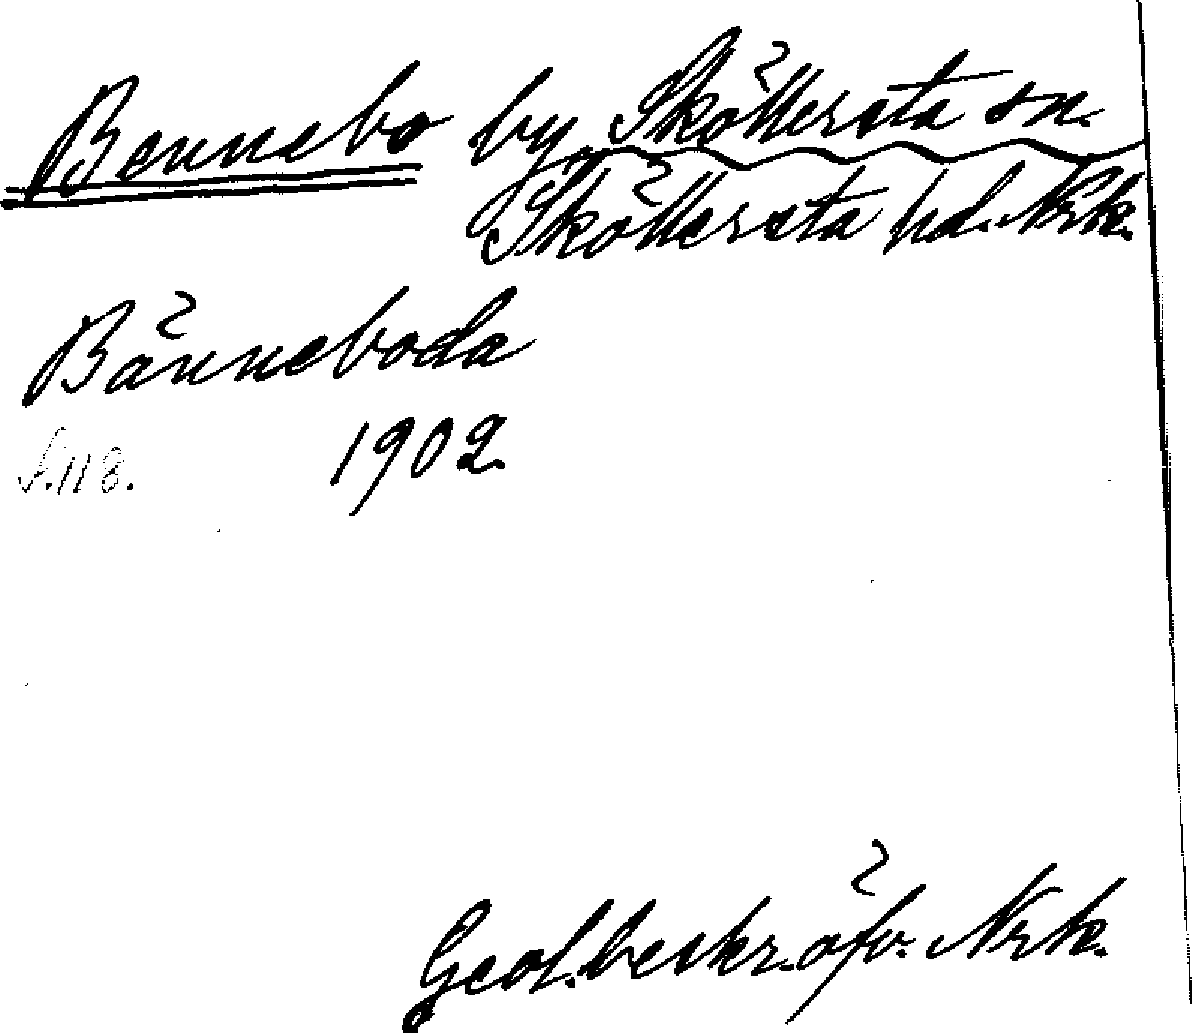 Bennebo by, Sköllersta sn.
Sköllersta hd. Nrk.
Bänneboda
S. 118. 1902.
Geol. beskr. öfv. Nrk.